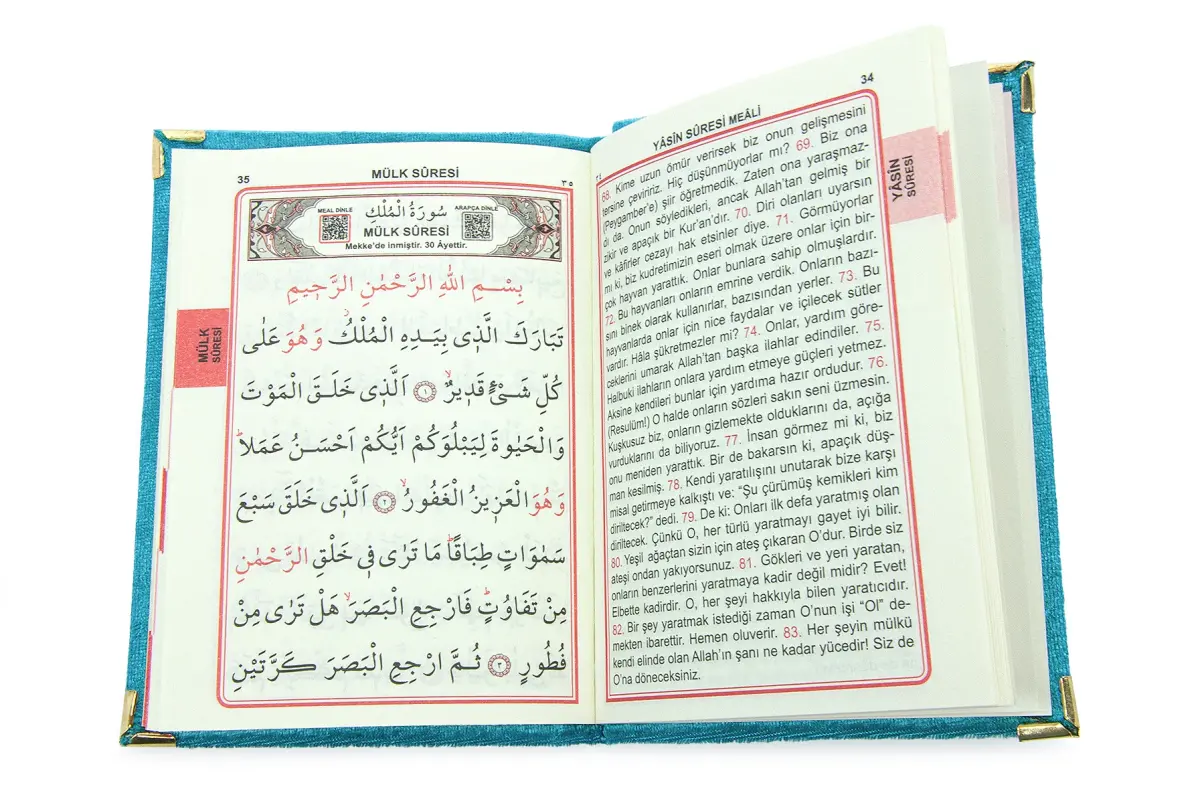 34
YÂSÎN SÛRESİ MEÂLİ
68. Kime uzun ömür verirsek biz onun gelişmesini
tersine çeviririz. Hiç düşünmüyorlar mı? 69. Biz ona
(Peygamber'e) şiir öğretmedik. Zaten ona yaraşmaz-
dı da. Onun söyledikleri, ancak Allah'tan gelmiş bir
zikir ve apaçık bir Kur'an'dır. 70. Diri olanları uyarsın
ve kâfirler cezayı hak etsinler diye. 71. Görmüyorlar
mı ki, biz kudretimizin eseri olmak üzere onlar için bir-
çok hayvan yarattık. Onlar bunlara sahip olmuşlardır.
72. Bu hayvanları onların emrine verdik. Onların bazı-
sını binek olarak kullanırlar, bazısından yerler. 73. Bu
hayvanlarda onlar için nice faydalar ve içilecek sütler
vardır. Hâla şükretmezler mi? 74. Onlar, yardım göre-
ceklerini umarak Allah'tan başka ilahlar edindiler. 75.
Halbuki ilahların onlara yardım etmeye güçleri yetmez.
Aksine kendileri bunlar için yardıma hazır ordudur. 76.
(Resulüm!) O halde onların sözleri sakın seni üzmesin.
Kuşkusuz biz, onların gizlemekte olduklarını da, açığa
vurduklarını da biliyoruz. 77. İnsan görmez mi ki, biz
onu meniden yarattık. Bir de bakarsın ki, apaçık düş-
man kesilmiş. 78. Kendi yaratılışını unutarak bize karşı
misal getirmeye kalkıştı ve: "Şu çürümüş kemikleri kim
diriltecek?" dedi. 79. De ki: Onları ilk defa yaratmış olan
diriltecek. Çünkü O, her türlü yaratmayı gayet iyi bilir.
80. Yeşil ağaçtan sizin için ateş çıkaran O'dur. Birde siz
ateşi ondan yakıyorsunuz. 81. Gökleri ve yeri yaratan,
onların benzerlerini yaratmaya kadir değil midir? Evet!
Elbette kadirdir. O, her şeyi hakkıyla bilen yaratıcıdır.
82. Bir şey yaratmak istediği zaman O'nun işi "Ol" de-
mekten ibarettir. Hemen oluverir. 83. Her şeyin mülkü
kendi elinde olan Allah'ın şanı ne kadar yücedir! Siz de
O'na döneceksiniz.
YÂSÎN
SÛRESİ
35
MÜLK SÛRESİ
٣٥
MEAL DİNLE
سُورَةُ الْمُلْكِ
ARAPÇA DİNLE
MÜLK SÛRESİ
Mekke'de inmiştir. 30 Âyettir.
بِسْمِ اللّٰهِ الرَّحْمٰنِ الرَّح۪يمِ
تَبَارَكَ الَّذ۪ي بِيَدِهِ الْمُلْكُۘ وَهُوَ عَلٰى
كُلِّ شَيْءٍ قَد۪يرٌۙ ﴿١﴾ اَلَّذ۪ي خَلَقَ الْمَوْتَ
وَالْحَيٰوةَ لِيَبْلُوَكُمْ اَيُّكُمْ اَحْسَنُ عَمَلاًۜ
وَهُوَ الْعَز۪يزُ الْغَفُورُۙ ﴿٢﴾ اَلَّذ۪ي خَلَقَ سَبْعَ
سَمٰوَاتٍ طِبَاقاًۜ مَا تَرٰى ف۪ي خَلْقِ الرَّحْمٰنِ
مِنْ تَفَاوُتٍۜ فَارْجِعِ الْبَصَرَۙ هَلْ تَرٰى مِنْ
فُطُورٍ ﴿٣﴾ ثُمَّ ارْجِعِ الْبَصَرَ كَرَّتَيْنِ
MÜLK
SÛRESİ